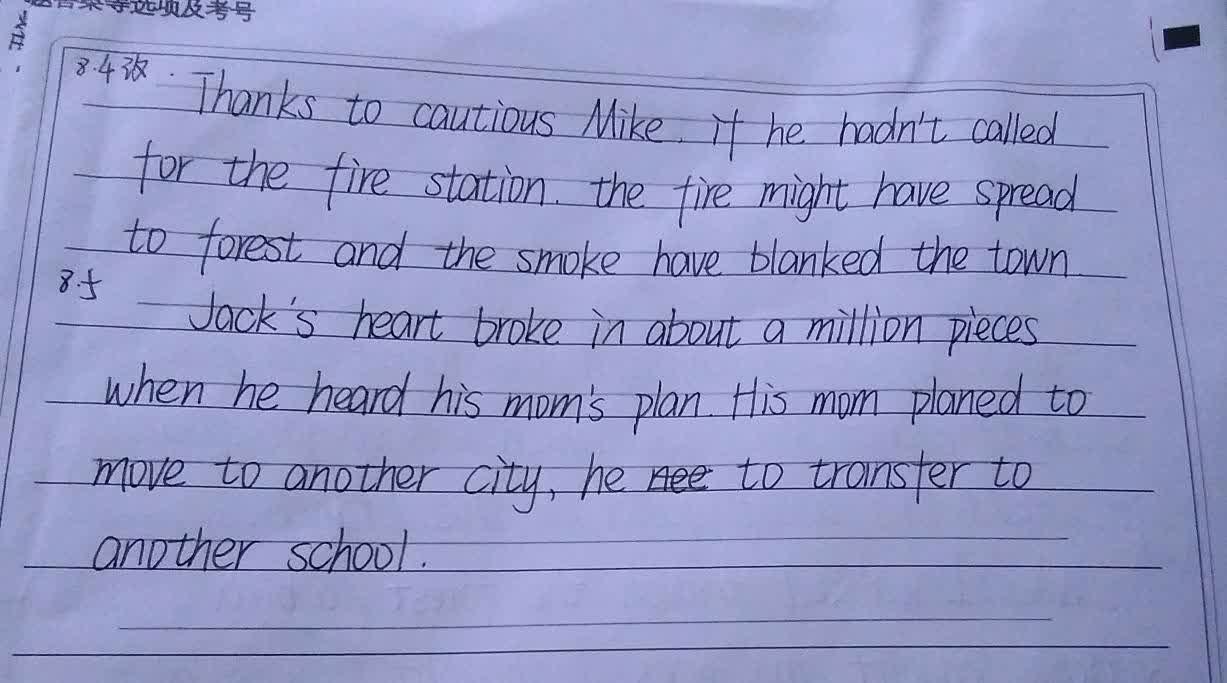 选项及考号
8.4改. Thanks to cautious Mike. if he hadn't called
for the fire station. the fire might have spread
to forest and the smoke have blanked the town
8.5
Jack's heart broke in about a million pieces
when he heard his mom's plan. His mom planed to
move to another city, he nee to transfer to
another school.